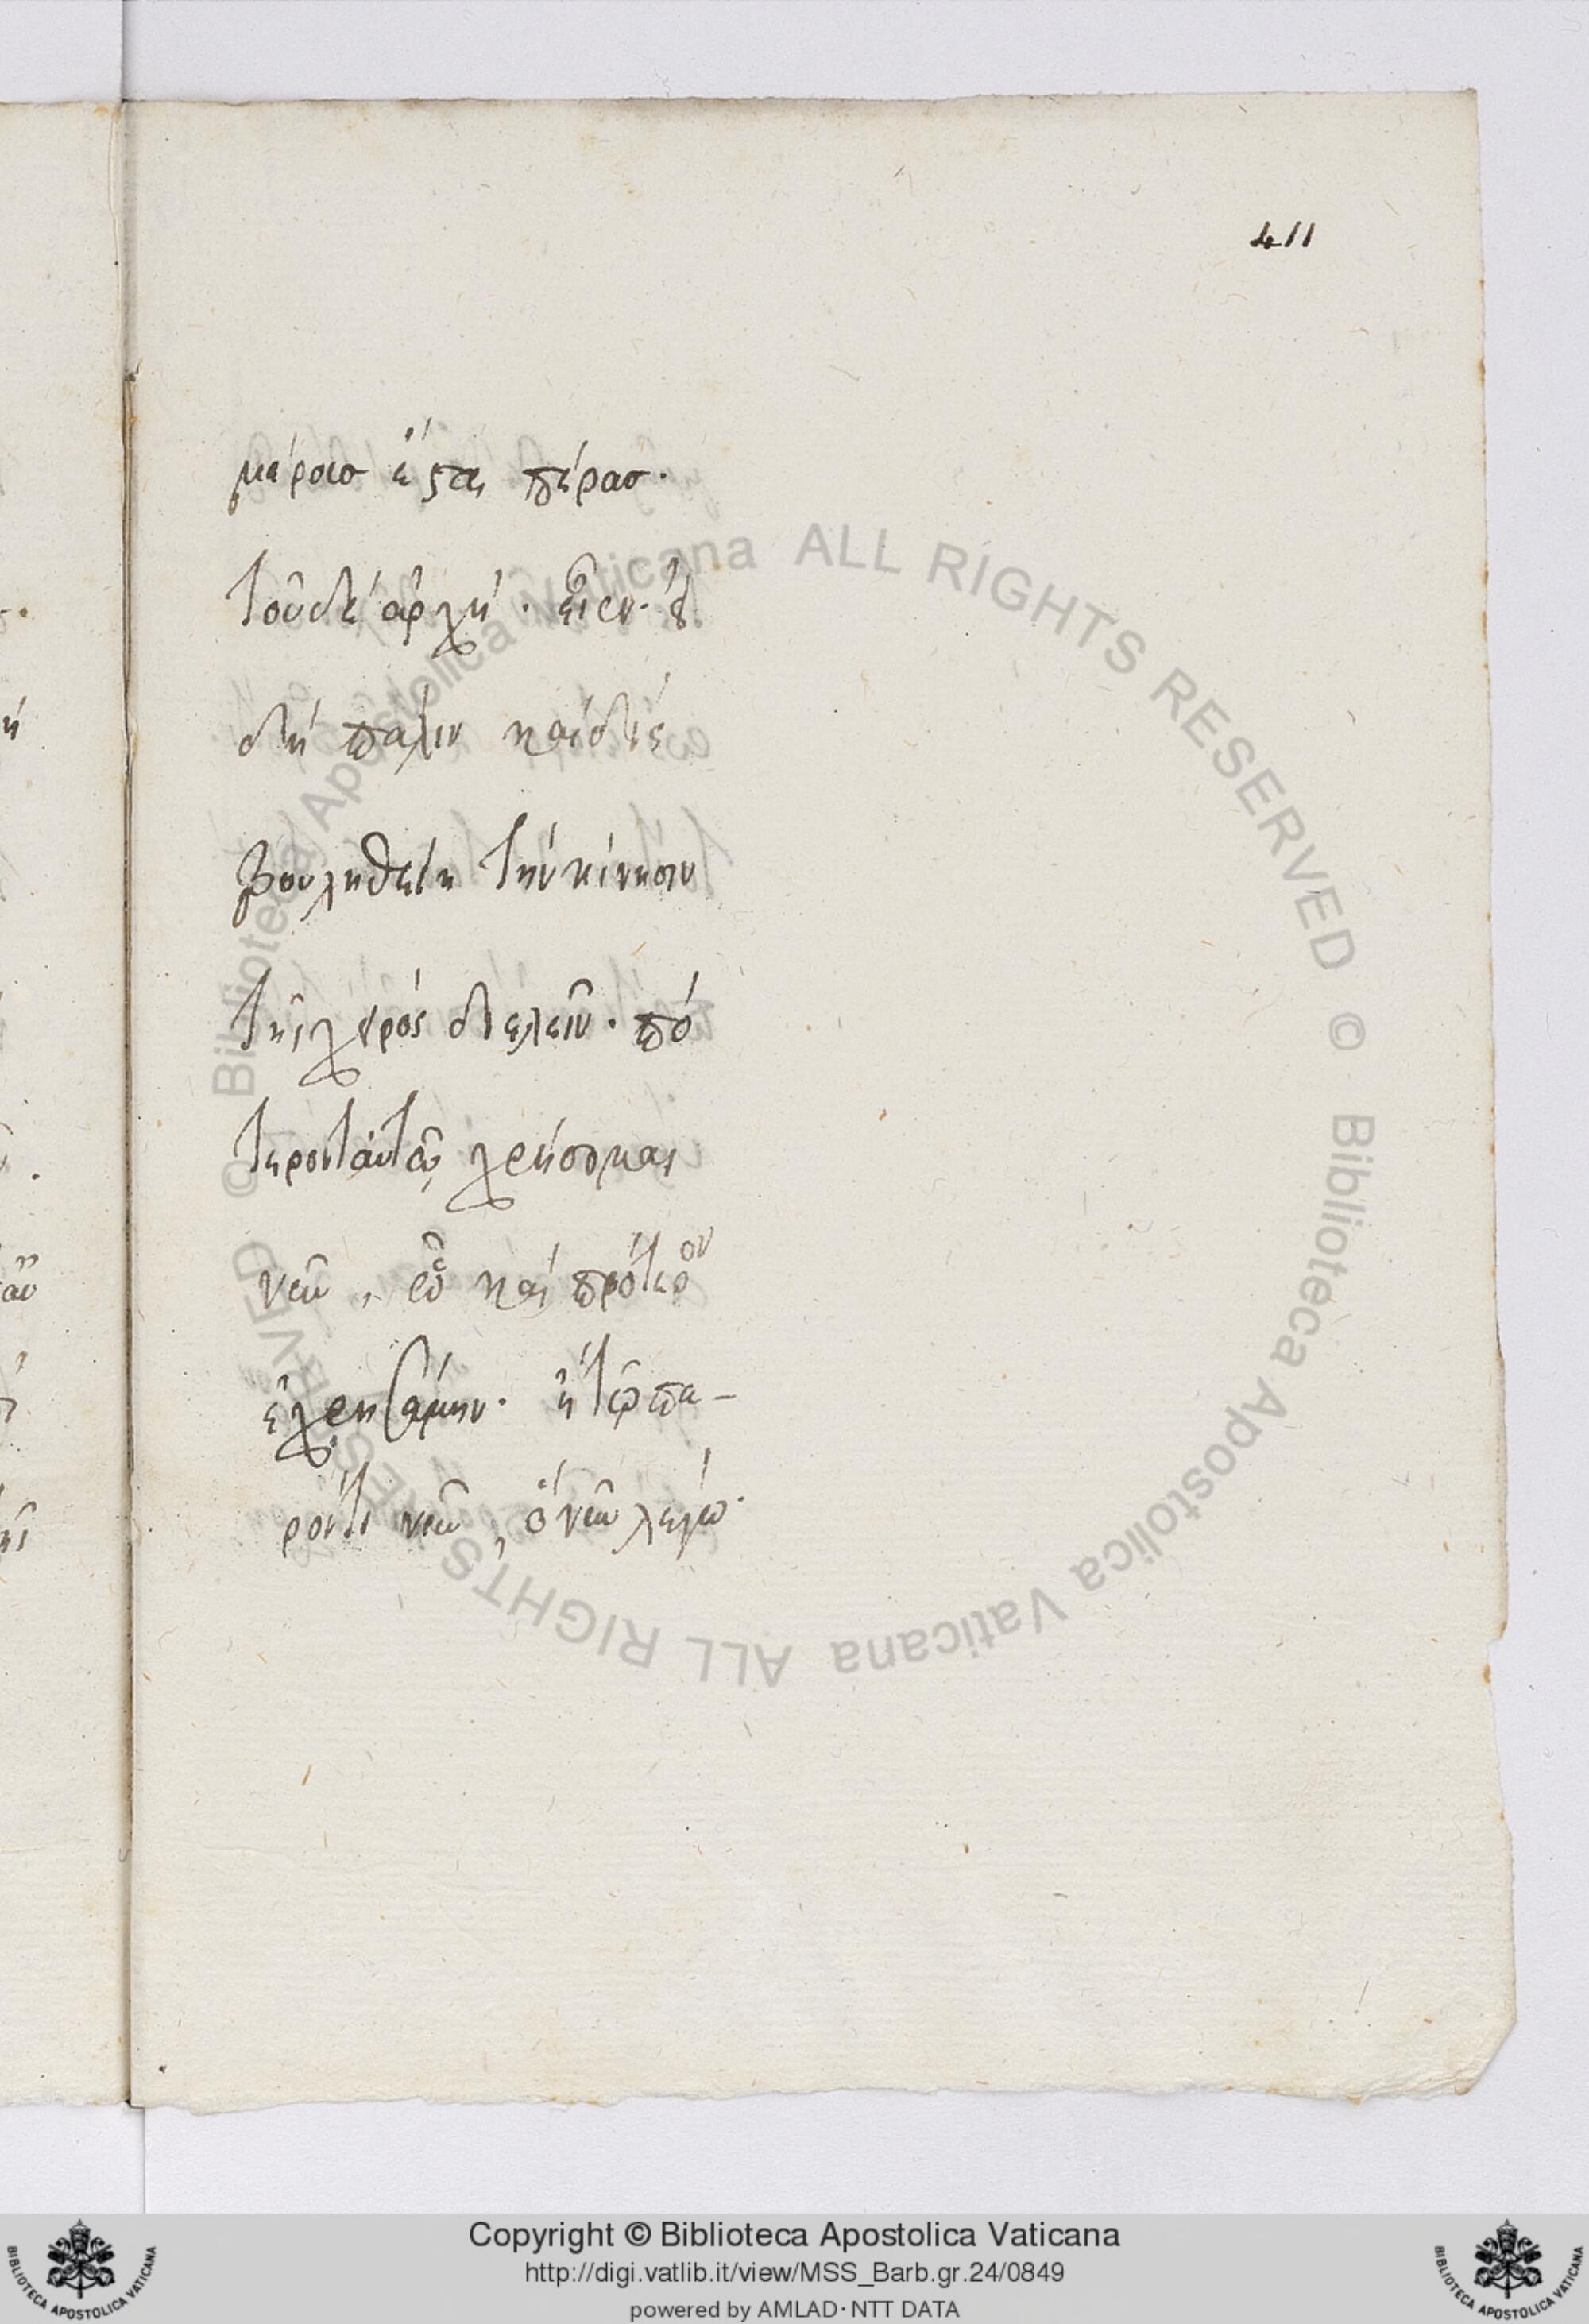 411
μέρους ἔσται πέρας.
τοῦ δὲ ἀρχή. εἶεν. εἰ
δὴ πάλιν καὶ δὶς
βουληθείη τὴν κίνησιν
τῆς χειρός διελεῖν. πό
τερον ταὐτῷ χρήσομαι
νῦν, ᾧ καὶ πρότερον
ἐχρησάμην. ἢ τῷ πα-
ρόντι νῦν, ὃ νῦν λέγω.
Copyright © Biblioteca Apostolica Vaticana
http://digi.vatlib.it/view/MSS_Barb.gr.24/0849
powered by AMLAD·NTT DATA
© Biblioteca Apostolica Vaticana ALL RIGHTS RESERVED
© Biblioteca Apostolica Vaticana ALL RIGHTS RESERVED
BIBLIOTECA APOSTOLICA VATICANA
BIBLIOTECA APOSTOLICA VATICANA